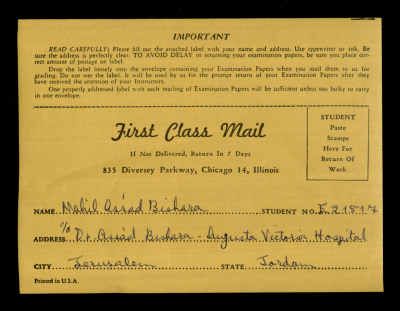 IMPORTANT
READ CAREFULLY: Please fill out the attached label with your name and address. Use typewriter or ink. Be
sure the address is perfectly clear. TO AVOID DELAY in returning your examination papers, be sure you place cor-
rect amount of postage on label.
Drop the label loosely into the envelope containing your Examination Papers when you mail them to us for
grading. Do not wet the label. It will be used by us for the prompt return of your Examination Papers after they
have received the attention of your Instructors.
One properly addressed label with each mailing of Examination Papers will be sufficient unless too bulky to carry
in one envelope.
First Class Mail
If Not Delivered, Return In 7 Days
835 Diversey Parkway, Chicago 14, Illinois
STUDENT
Paste
Stamps
Here For
Return Of
Work
NAME Nabil Assad Bishara STUDENT NO. E 21517
ADDRESS c/o Dr Assad Bishara - Augusta Victoria Hospital
CITY Jerusalem STATE Jordan
Printed in U.S.A.